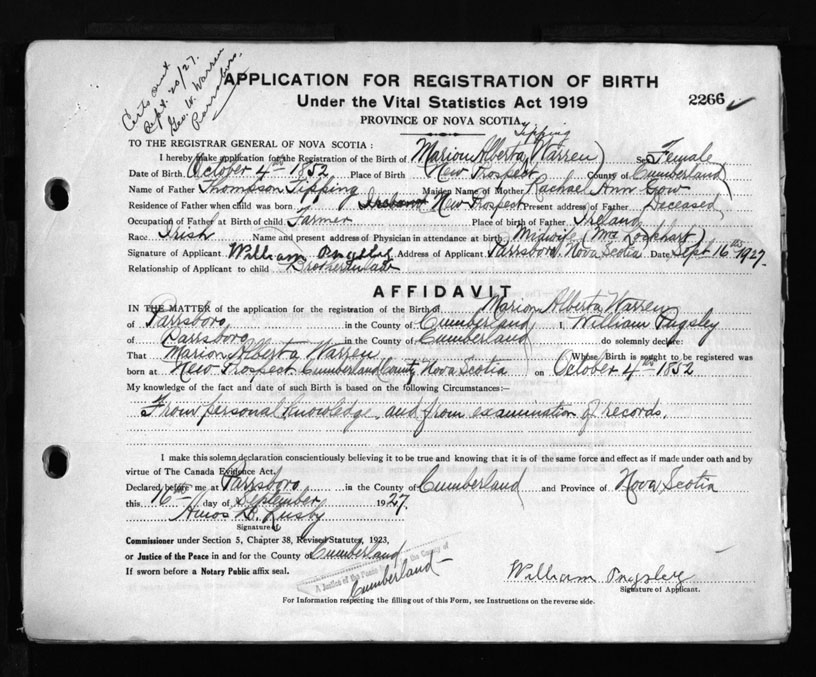 Certs sent
Sept. 20/27.
Geo. W. Warren
Parrsboro.
APPLICATION FOR REGISTRATION OF BIRTH
Under the Vital Statistics Act 1919
2266
PROVINCE OF NOVA SCOTIA
Tipping
TO THE REGISTRAR GENERAL OF NOVA SCOTIA:
I hereby make application for the Registration of the Birth of Marion Alberta (Warren) Sex Female
Date of Birth October 4th 1852 Place of Birth New Prospect County of Cumberland
Name of Father Thompson Tipping Maiden Name of Mother Rachael Ann Gow
Residence of Father when child was born New Prospect Present address of Father Deceased
Occupation of Father at Birth of child Farmer Place of birth of Father Ireland
Race Irish Name and present address of Physician in attendance at birth Midwife (Mrs Lockhart)
Signature of Applicant William Pugsley Address of Applicant Parrsboro Nova Scotia Date Sept 16th 1927.
Relationship of Applicant to child Brother in law
AFFIDAVIT
IN THE MATTER of the application for the registration of the Birth of Marion Alberta Warren
of Parrsboro in the County of Cumberland I, William Pugsley
of Parrsboro in the County of Cumberland do solemnly declare:
That Marion Alberta Warren Whose Birth is sought to be registered was
born at New Prospect Cumberland County Nova Scotia on October 4th 1852
My knowledge of the fact and date of such Birth is based on the following Circumstances:
From personal knowledge, and from examination of records.
I make this solemn declaration conscientiously believing it to be true and knowing that it is of the same force and effect as if made under oath and by
virtue of The Canada Evidence Act.
Declared before me at Parrsboro in the County of Cumberland and Province of Nova Scotia
this 16th day of September 1927.
Amos B. Lusby
Signature of
Commissioner under Section 5, Chapter 38, Revised Statutes, 1923,
or Justice of the Peace in and for the County of Cumberland
If sworn before a Notary Public affix seal.
A Justice of the Peace in and for the County of
Cumberland
William Pugsley
Signature of Applicant.
For Information respecting the filling out of this Form, see Instructions on the reverse side.